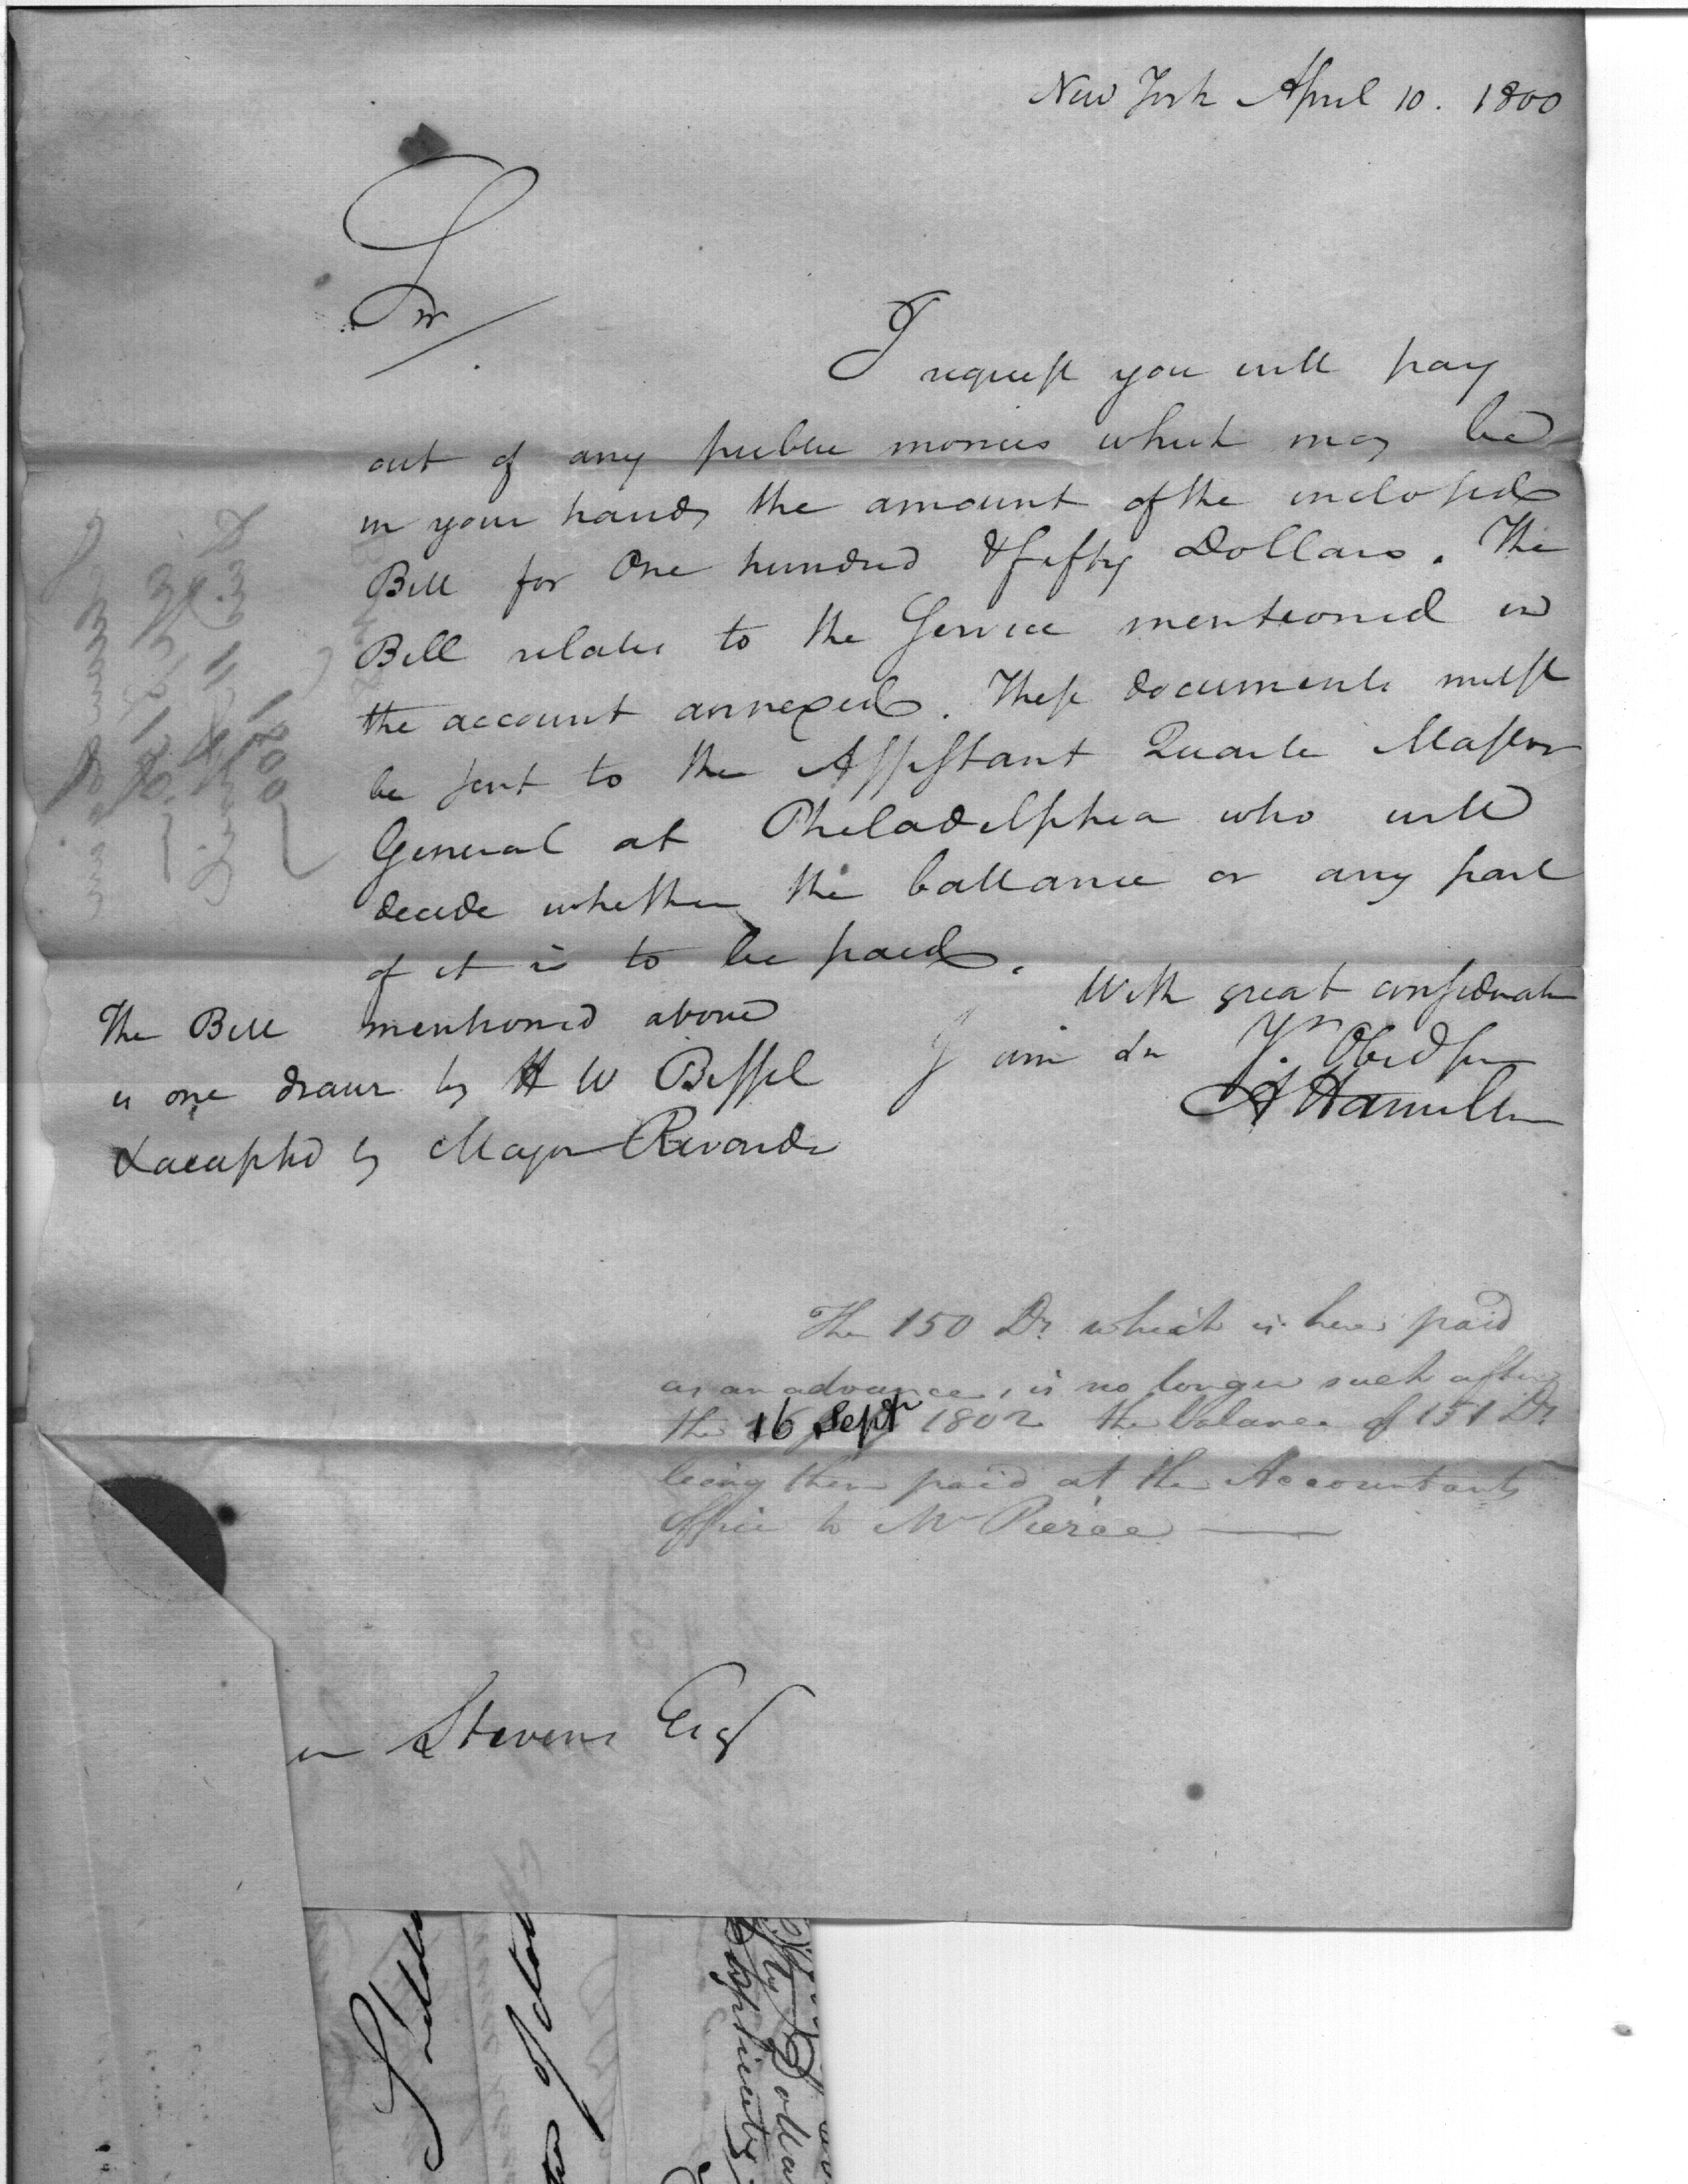 New York April 10. 1800
Sir
I request you will pay
out of any public monies which may be
in your hands the amount of the inclosed
Bill for One hundred & fifty Dollars. The
Bill relates to the Service mentioned in
the account annexed. These documents must
be sent to the Assistant Quarter Master
General at Philadelphia who will
decide whether the ballance or any part
of it is to be paid.
With great consideration
I am Sir Yr. Obed ser
A Hamilton
The Bill mentioned above
is one drawn by H W Bissel
& accepted by Major Rivardi
The 150 Drs which is here paid
as an advance, is no longer such after
the 16 Septr 1802 the balance of 151 Drs
being then paid at the Accountants
Office to Mr Pierce
Stevens Esq
1800